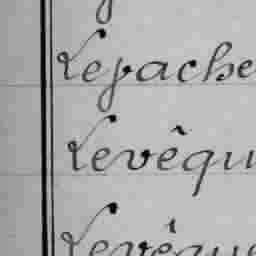 Lepache
Levêqu
Levêque